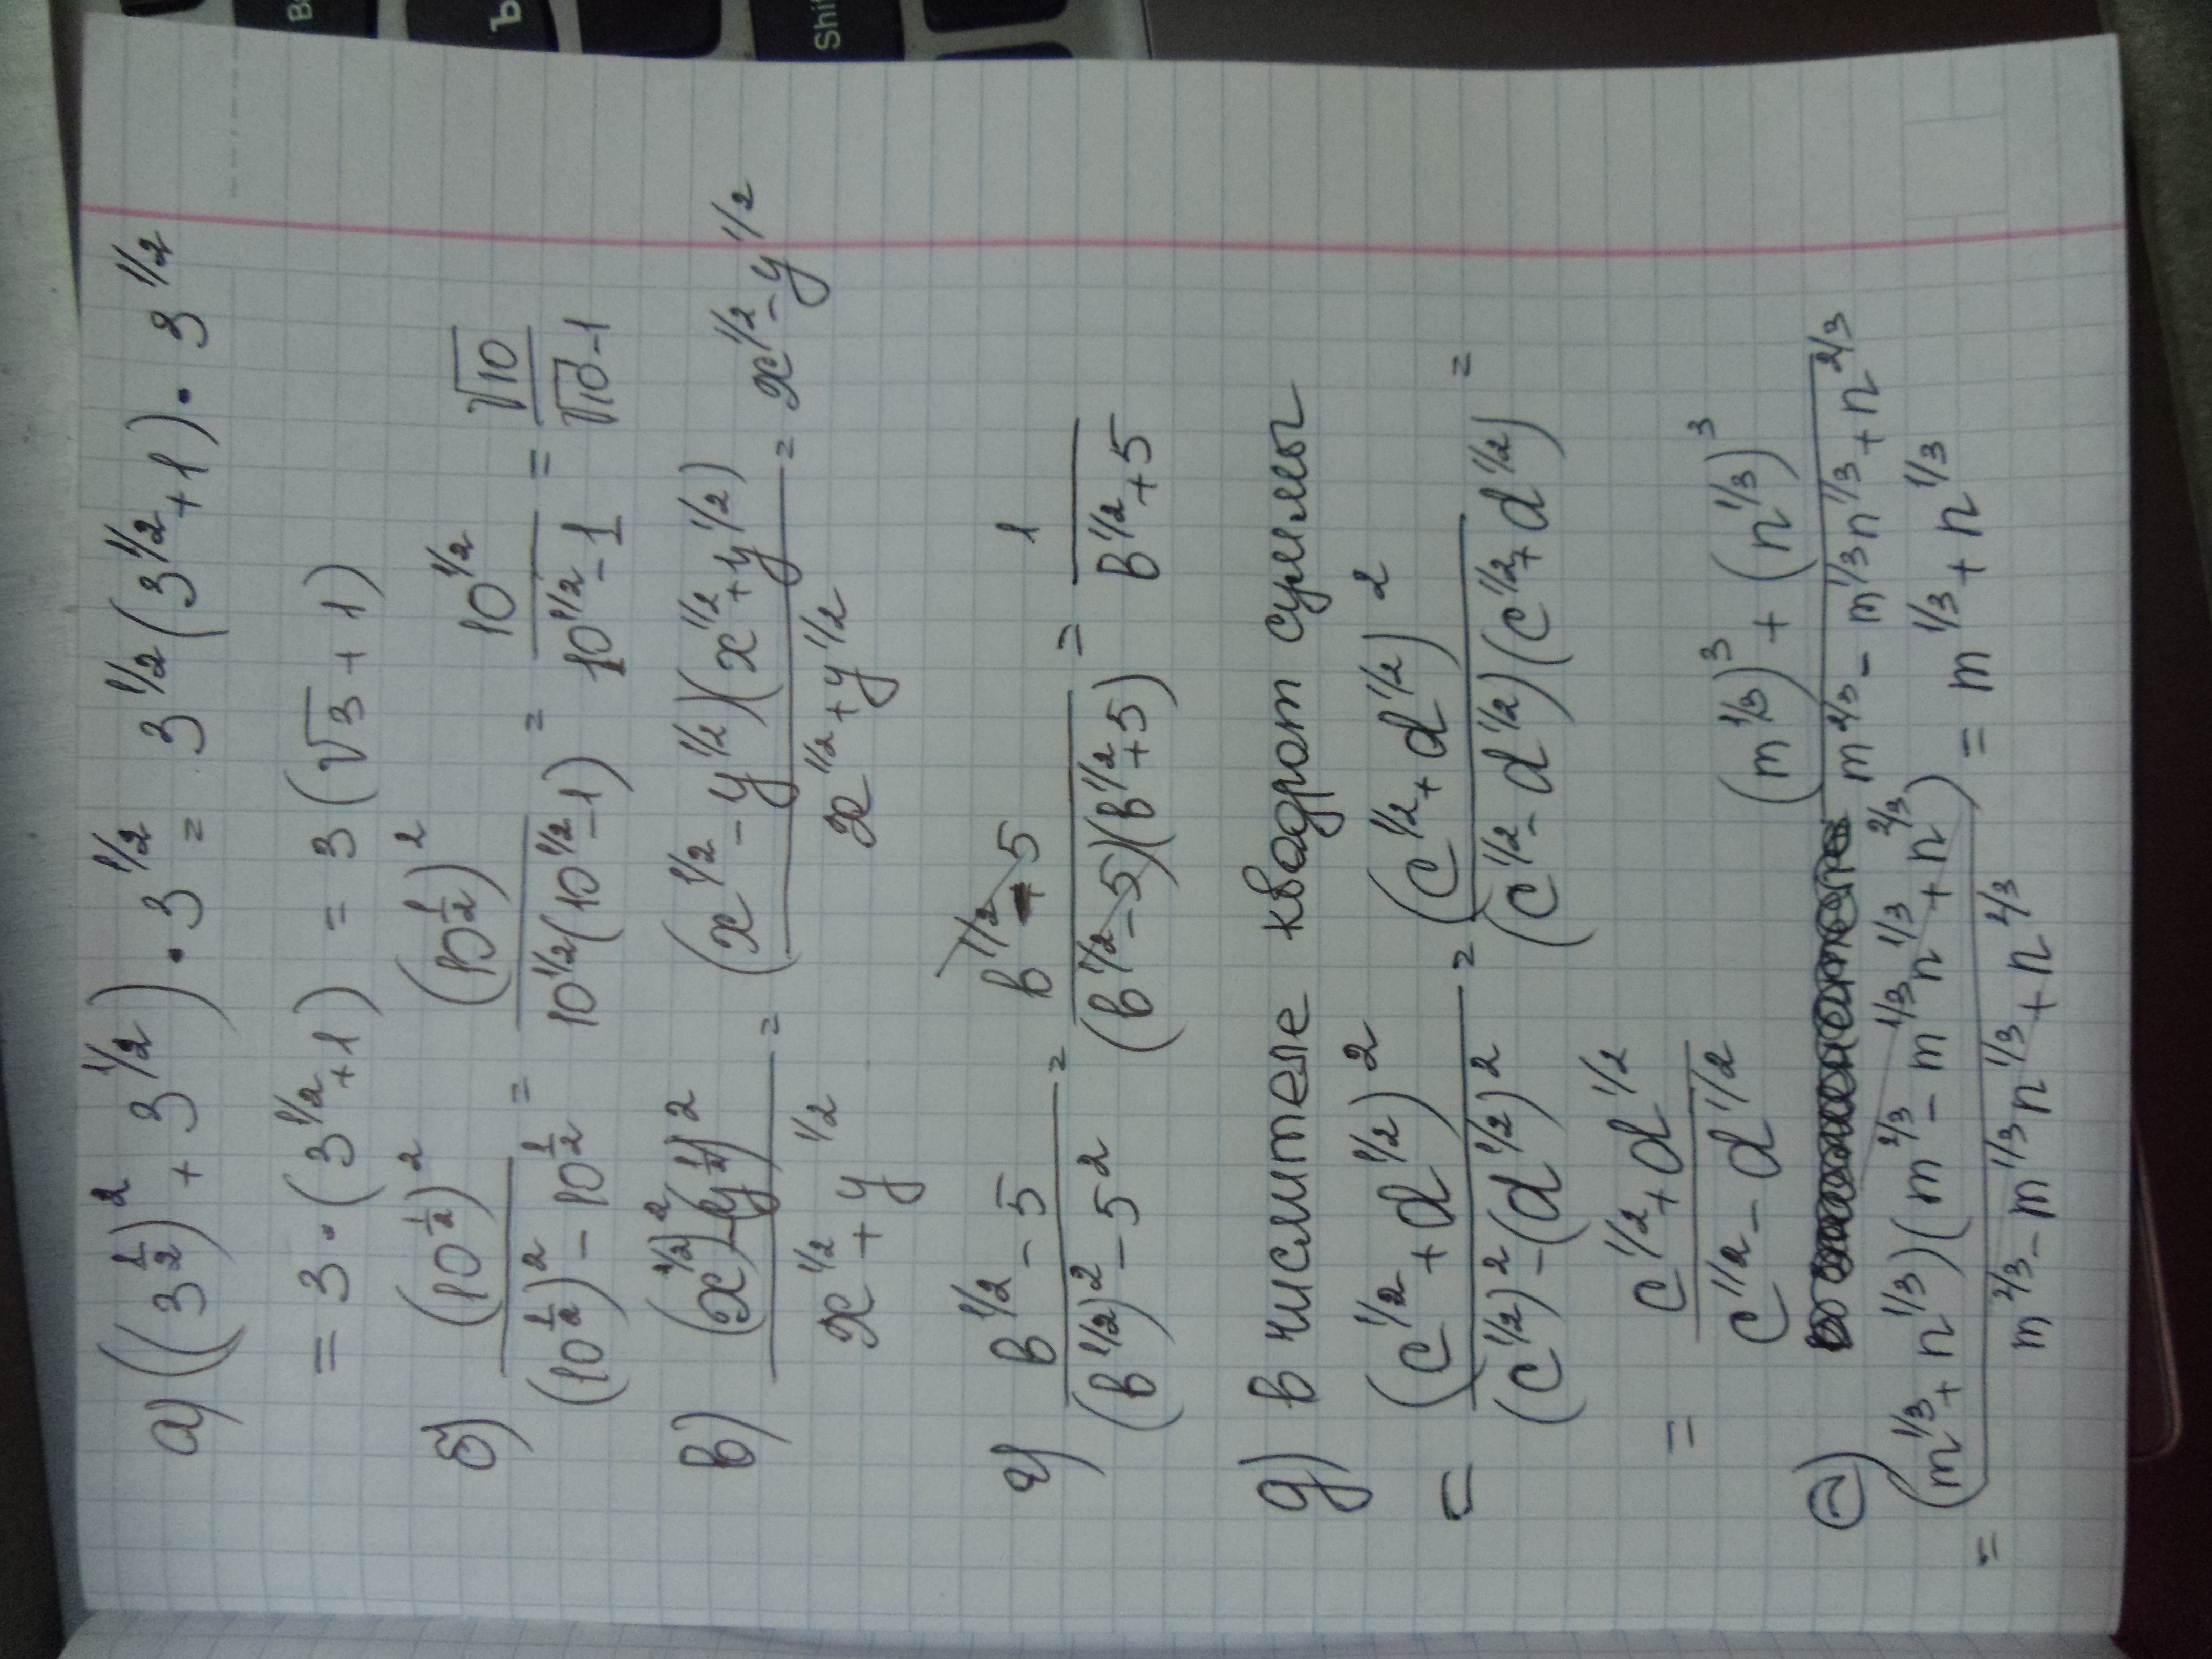 а) ((3^{1/2})^2 + 3^{1/2}) · 3^{1/2} = 3^{1/2}(3^{1/2}+1) · 3^{1/2}
= 3 · (3^{1/2}+1) = 3(√3 + 1)
б) (10^{1/2})^2 / ((10^{1/2})^2 - 10^{1/2}) = (10^{1/2})^2 / (10^{1/2}(10^{1/2}-1)) = 10^{1/2} / (10^{1/2}-1) = √10 / (√10-1)
в) ((x^{1/2})^2 - (y^{1/2})^2) / (x^{1/2}+y^{1/2}) = (x^{1/2}-y^{1/2})(x^{1/2}+y^{1/2}) / (x^{1/2}+y^{1/2}) = x^{1/2}-y^{1/2}
г) (в^{1/2} - 5) / ((в^{1/2})^2 - 5^2) = (в^{1/2} - 5) / ((в^{1/2}-5)(в^{1/2}+5)) = 1 / (в^{1/2}+5)
д) в числителе квадрат суммы
= (c^{1/2} + d^{1/2})^2 / ((c^{1/2})^2 - (d^{1/2})^2) = (c^{1/2}+d^{1/2})^2 / ((c^{1/2}-d^{1/2})(c^{1/2}+d^{1/2})) =
= (c^{1/2}+d^{1/2}) / (c^{1/2}-d^{1/2})
е) ((m^{1/3})^3 + (n^{1/3})^3) / (m^{2/3} - m^{1/3}n^{1/3} + n^{2/3})
= (m^{1/3}+n^{1/3})(m^{2/3} - m^{1/3}n^{1/3} + n^{2/3}) / (m^{2/3} - m^{1/3}n^{1/3} + n^{2/3}) = m^{1/3} + n^{1/3}
Shif
Ъ